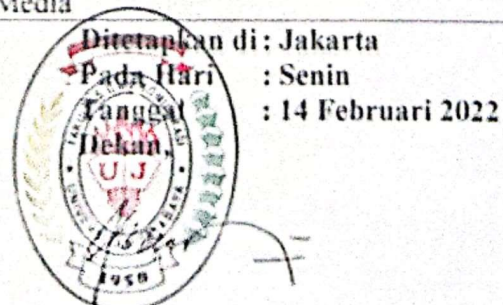 Media
Ditetapkan di : Jakarta
Pada Hari : Senin
Tanggal : 14 Februari 2022
Dekan,
U J
1950